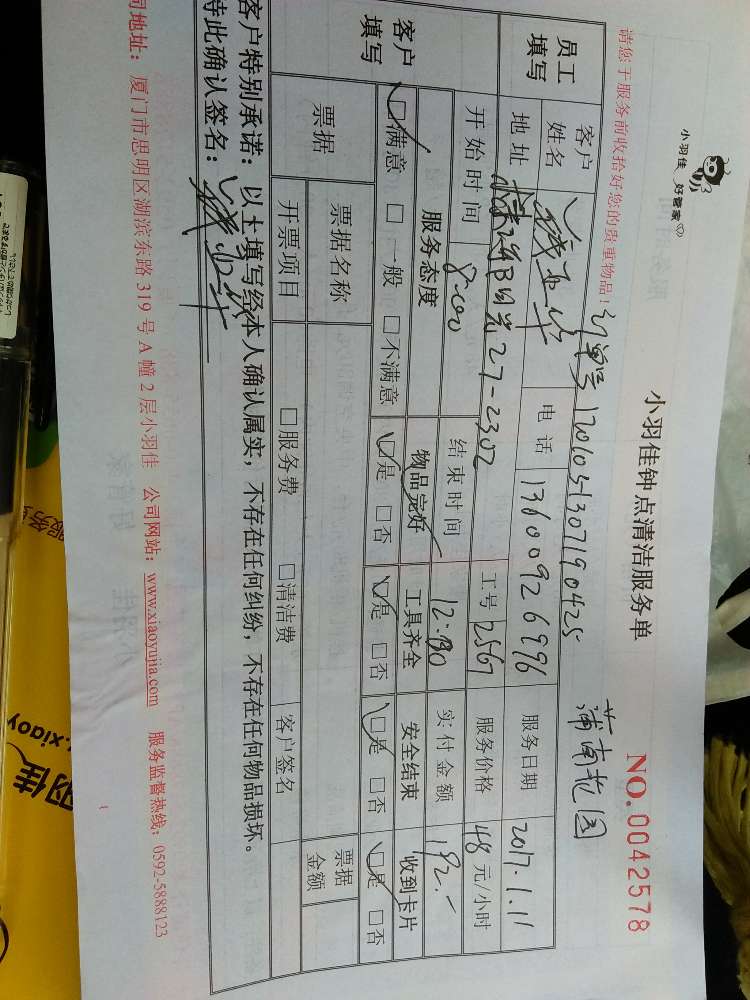 小羽佳 好管家
小羽佳钟点清洁服务单
NO.0042578
请您于服务前收拾好您的贵重物品!
订单号 1201051307190425
莆南花园
员工填写
客户姓名
电话 13600926996
服务日期 2017.1.11
地址 27-2302
工号 2567
服务价格 48 元/小时
开始时间 8:00
结束时间 12:00
实付金额 192.-
客户填写
服务态度 物品完好 工具齐全 安全结束 收到卡片
☑满意 □一般 □不满意 ☑是 □否 ☑是 □否 ☑是 □否 ☑是 □否
票据
票据名称
票据金额
开票项目 □服务费 □清洁费 客户签名
客户特别承诺:以上填写经本人确认属实,不存在任何纠纷,不存在任何物品损坏。
特此确认签名:
司地址: 厦门市思明区湖滨东路 319 号 A 幢 2 层小羽佳 公司网站:www.xiaoyujia.com 服务监督热线:0592-5888123